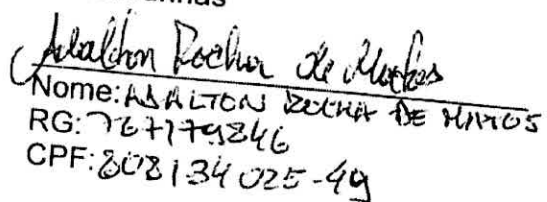 Adalton Rocha de Matos
Nome: ADALTON ROCHA DE MATOS
RG: 767179846
CPF: 808134025-49